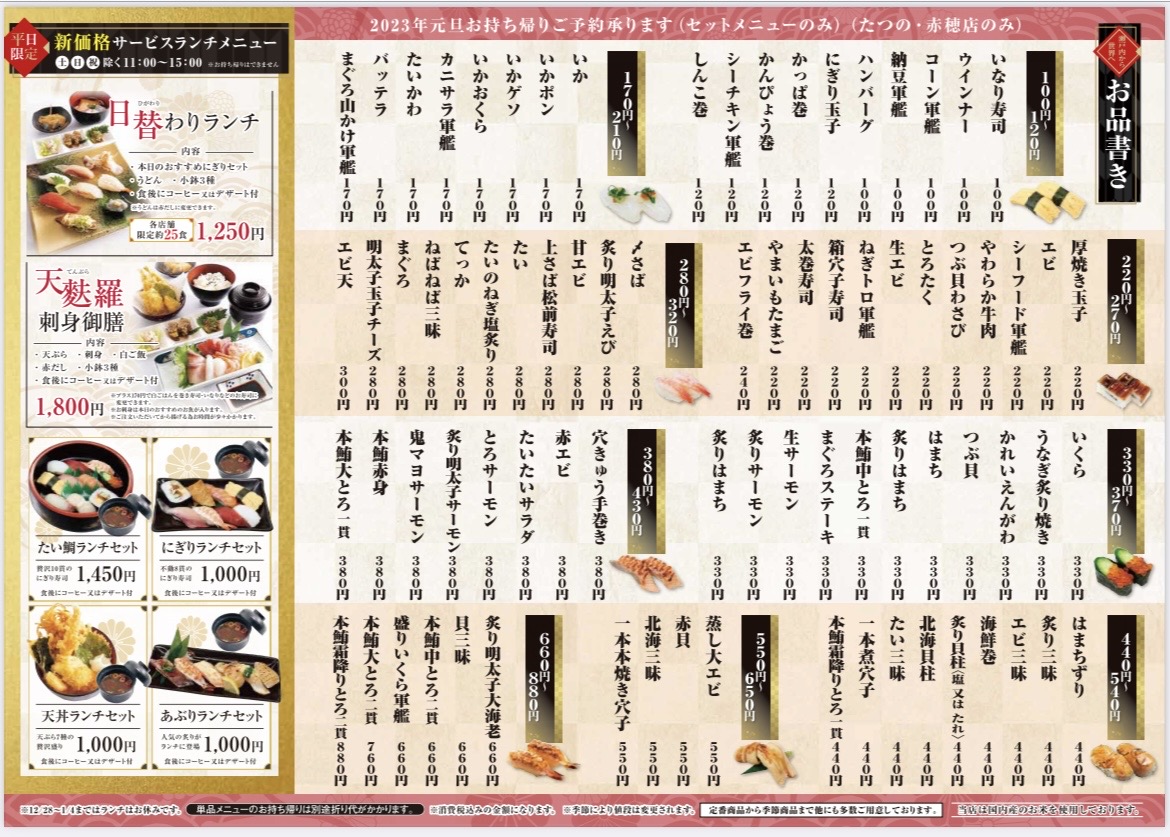 2023年元旦お持ち帰りご予約承ります（セットメニューのみ）（たつの・赤穂店のみ）
瀬戸内から世界へ
お品書き
100円〜120円
いなり寿司 100円
ウインナー 100円
コーン軍艦 100円
納豆軍艦 100円
ハンバーグ 100円
にぎり玉子 120円
かっぱ巻 120円
かんぴょう巻 120円
シーチキン軍艦 120円
しんこ巻 120円
170円〜210円
いか 170円
いかポン 170円
いかゲソ 170円
いかおくら 170円
カニサラ軍艦 170円
たいかわ 170円
バッテラ 170円
まぐろ山かけ軍艦 170円
220円〜270円
厚焼き玉子 220円
エビ 220円
シーフード軍艦 220円
やわらか牛肉 220円
つぶ貝わさび 220円
とろたく 220円
生エビ 220円
ねぎトロ軍艦 220円
箱穴子寿司 220円
太巻寿司 220円
やまいもたまご 220円
エビフライ巻 240円
280円〜320円
〆さば 280円
炙り明太子えび 280円
甘エビ 280円
上さば松前寿司 280円
たい 280円
たいのねぎ塩炙り 280円
てっか 280円
ねばねば三昧 280円
まぐろ 280円
明太子玉子チーズ 280円
エビ天 300円
330円〜370円
いくら 330円
うなぎ炙り焼き 330円
かれいえんがわ 330円
つぶ貝 330円
はまち 330円
炙りはまち 330円
本鮪中とろ一貫 330円
まぐろステーキ 330円
生サーモン 330円
炙りサーモン 330円
炙りはまち 330円
380円〜430円
穴きゅう手巻き 380円
赤エビ 380円
たいたいサラダ 380円
とろサーモン 380円
炙り明太子サーモン 380円
鬼マヨサーモン 380円
本鮪赤身 380円
本鮪大とろ一貫 380円
440円〜540円
はまちずり 440円
炙り三昧 440円
エビ三昧 440円
海鮮巻 440円
炙り貝柱（塩又はたれ） 440円
北海貝柱 440円
たい三昧 440円
一本煮穴子 440円
本鮪霜降りとろ一貫 440円
550円〜650円
蒸し大エビ 550円
赤貝 550円
北海三昧 550円
一本本焼き穴子 550円
660円〜880円
炙り明太子大海老 660円
貝三昧 660円
本鮪中とろ二貫 660円
盛りいくら軍艦 660円
本鮪大とろ二貫 760円
本鮪霜降りとろ二貫 880円
平日限定
新価格サービスランチメニュー
土日祝除く11：00〜15：00 ※お持ち帰りはできません
ひがわり
日替わりランチ
内容
・本日のおすすめにぎりセット
・うどん ・小鉢3種
・食後にコーヒー又はデザート付
※うどんは赤だしに変更できます。
各店舗限定約25食 1,250円
てんぷら
天麩羅
刺身御膳
内容
・天ぷら ・刺身 ・白ご飯
・赤だし ・小鉢3種
・食後にコーヒー又はデザート付
1,800円
※プラス170円で白ごはんを巻き寿司・いなりなどのお寿司に変更できます。
※お刺身は本日のおすすめのお魚が入ります。
※ご注文いただいてから揚げる為お時間が少々かかります。
たい鯛ランチセット
贅沢10貫のにぎり寿司 1,450円
食後にコーヒー又はデザート付
にぎりランチセット
不動8貫のにぎり寿司 1,000円
食後にコーヒー又はデザート付
天丼ランチセット
天ぷら7種の贅沢盛り 1,000円
食後にコーヒー又はデザート付
あぶりランチセット
人気の炙りがランチに登場 1,000円
食後にコーヒー又はデザート付
※12/28〜1/4まではランチはお休みです。 単品メニューのお持ち帰りは別途折り代がかかります。 ※消費税込みの金額になります。 ※季節により値段は変更されます。 定番商品から季節商品まで他にも多数ご用意しております。 当店は国内産のお米を使用しております。